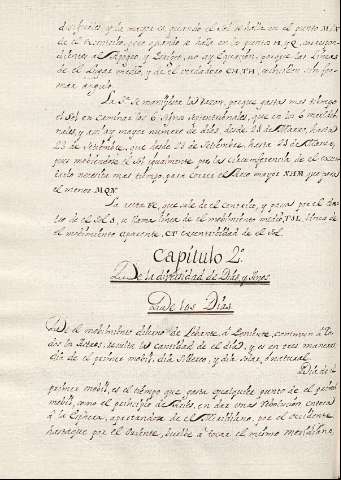 distintos, y la mayor es quando el Sol se halla en el punto M, N
de el Excentrico, pero quando se halla en los puntos H, y Q, en correspon
dientes al Apogeo y Perigeo, no ay Equacion, porque las Lineas
de el Lugar medio, y de el verdadero CH, TH, coinciden sin for
mar angulo.
La 3ª. se manifiesta la razon, porque gasta mas tiempo
el Sol en caminar los 6 signos septentrionales, que en los 6 meridio
nales, y assi ay mayor numero de dias, desde 21 de Marzo, hasta
23 de Setiembre, que desde 23 de Setiembre, hasta 21 de Marzo,
pues moviendose el Sol igualmente por la circunferencia de el excen
trico necesita mas tiempo, para correr el Arco mayor NHM que para
el menor MQN
La recta que sale de el centro, y passa por el cen
tro de el Sol S, se llama linea de el movimiento medio, TSL, linea de
el movimiento aparente, CT excentricidad de el Sol.
Capítulo 2º.
De la diversidad de Dias, y Años.
De los Dias.
De el movimiento diurno de Levante, á Poniente, comun á To
dos los Astros, resulta la cantidad de el dia, y es en tres maneras
dia de el primer mobil, dia sidereo, y dia solar, ó natural.
Dia de el
primer mobil, es el tiempo que gasta qualquier punto de el primer
mobil, como el principio de Aries, en dar una revolucion entera
á la Esphera, apartandose de el Meridiano, por el Occidente
hasta que por el Oriente, buelve á tocar el mismo meridiano,